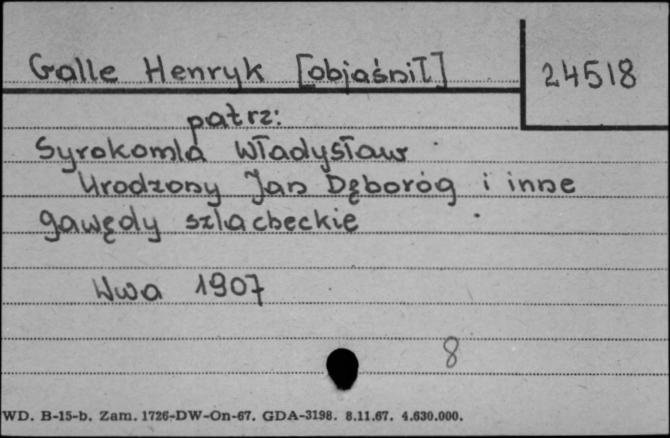 Galle Henryk [objaśnił]
24518
patrz:
Syrokomla Władysław
Urodzony Jan Dęboróg i inne
gawędy szlacheckie
Wwa 1907
8
WD. B-15-b. Zam. 1726-DW-On-67. GDA-3198. 8.11.67. 4.630.000.